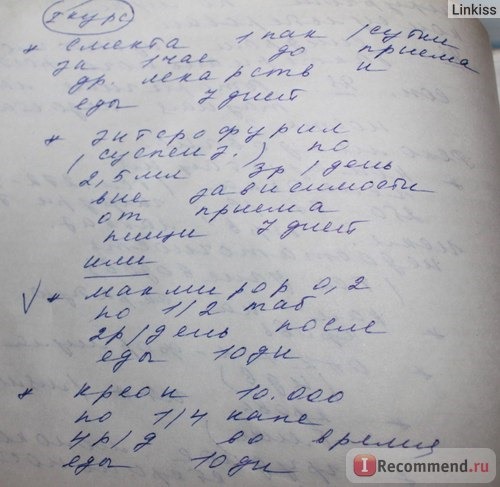 Linkiss
I курс
* смекта 1 пак / сутки
за 1 час до приема
др. лекарств и
еды 7 дней
* энтерофурил
(суспенз.) по
2,5 мл 3р/день
вне зависимости
от приема
пищи 7 дней
или
V * макмирор 0,2
по 1/2 таб
2р/день после
еды 10 дн
* креон 10.000
по 1/4 капс
4р/д во время
еды 10 дн
I Recommend.ru